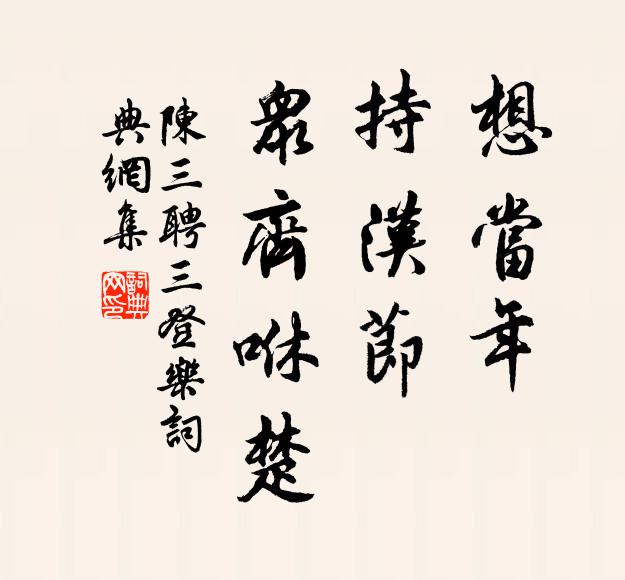 想當年
持漢節
眾齊咻楚
陳三聘三登樂詞
典網集
詞典網印